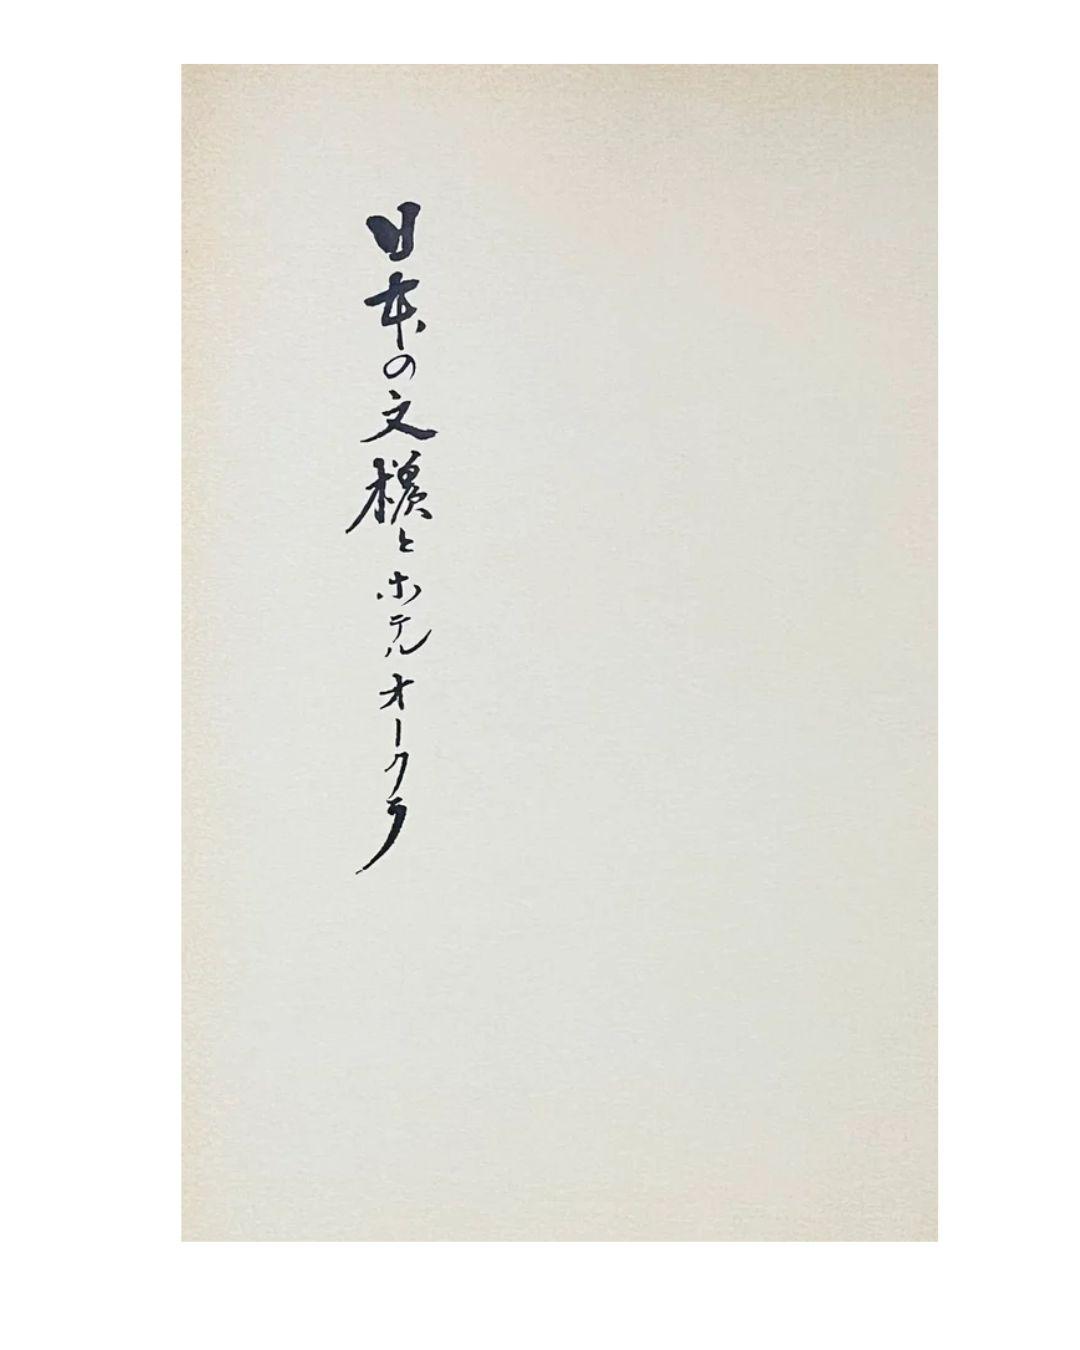 日本の文様とホテルオークラ